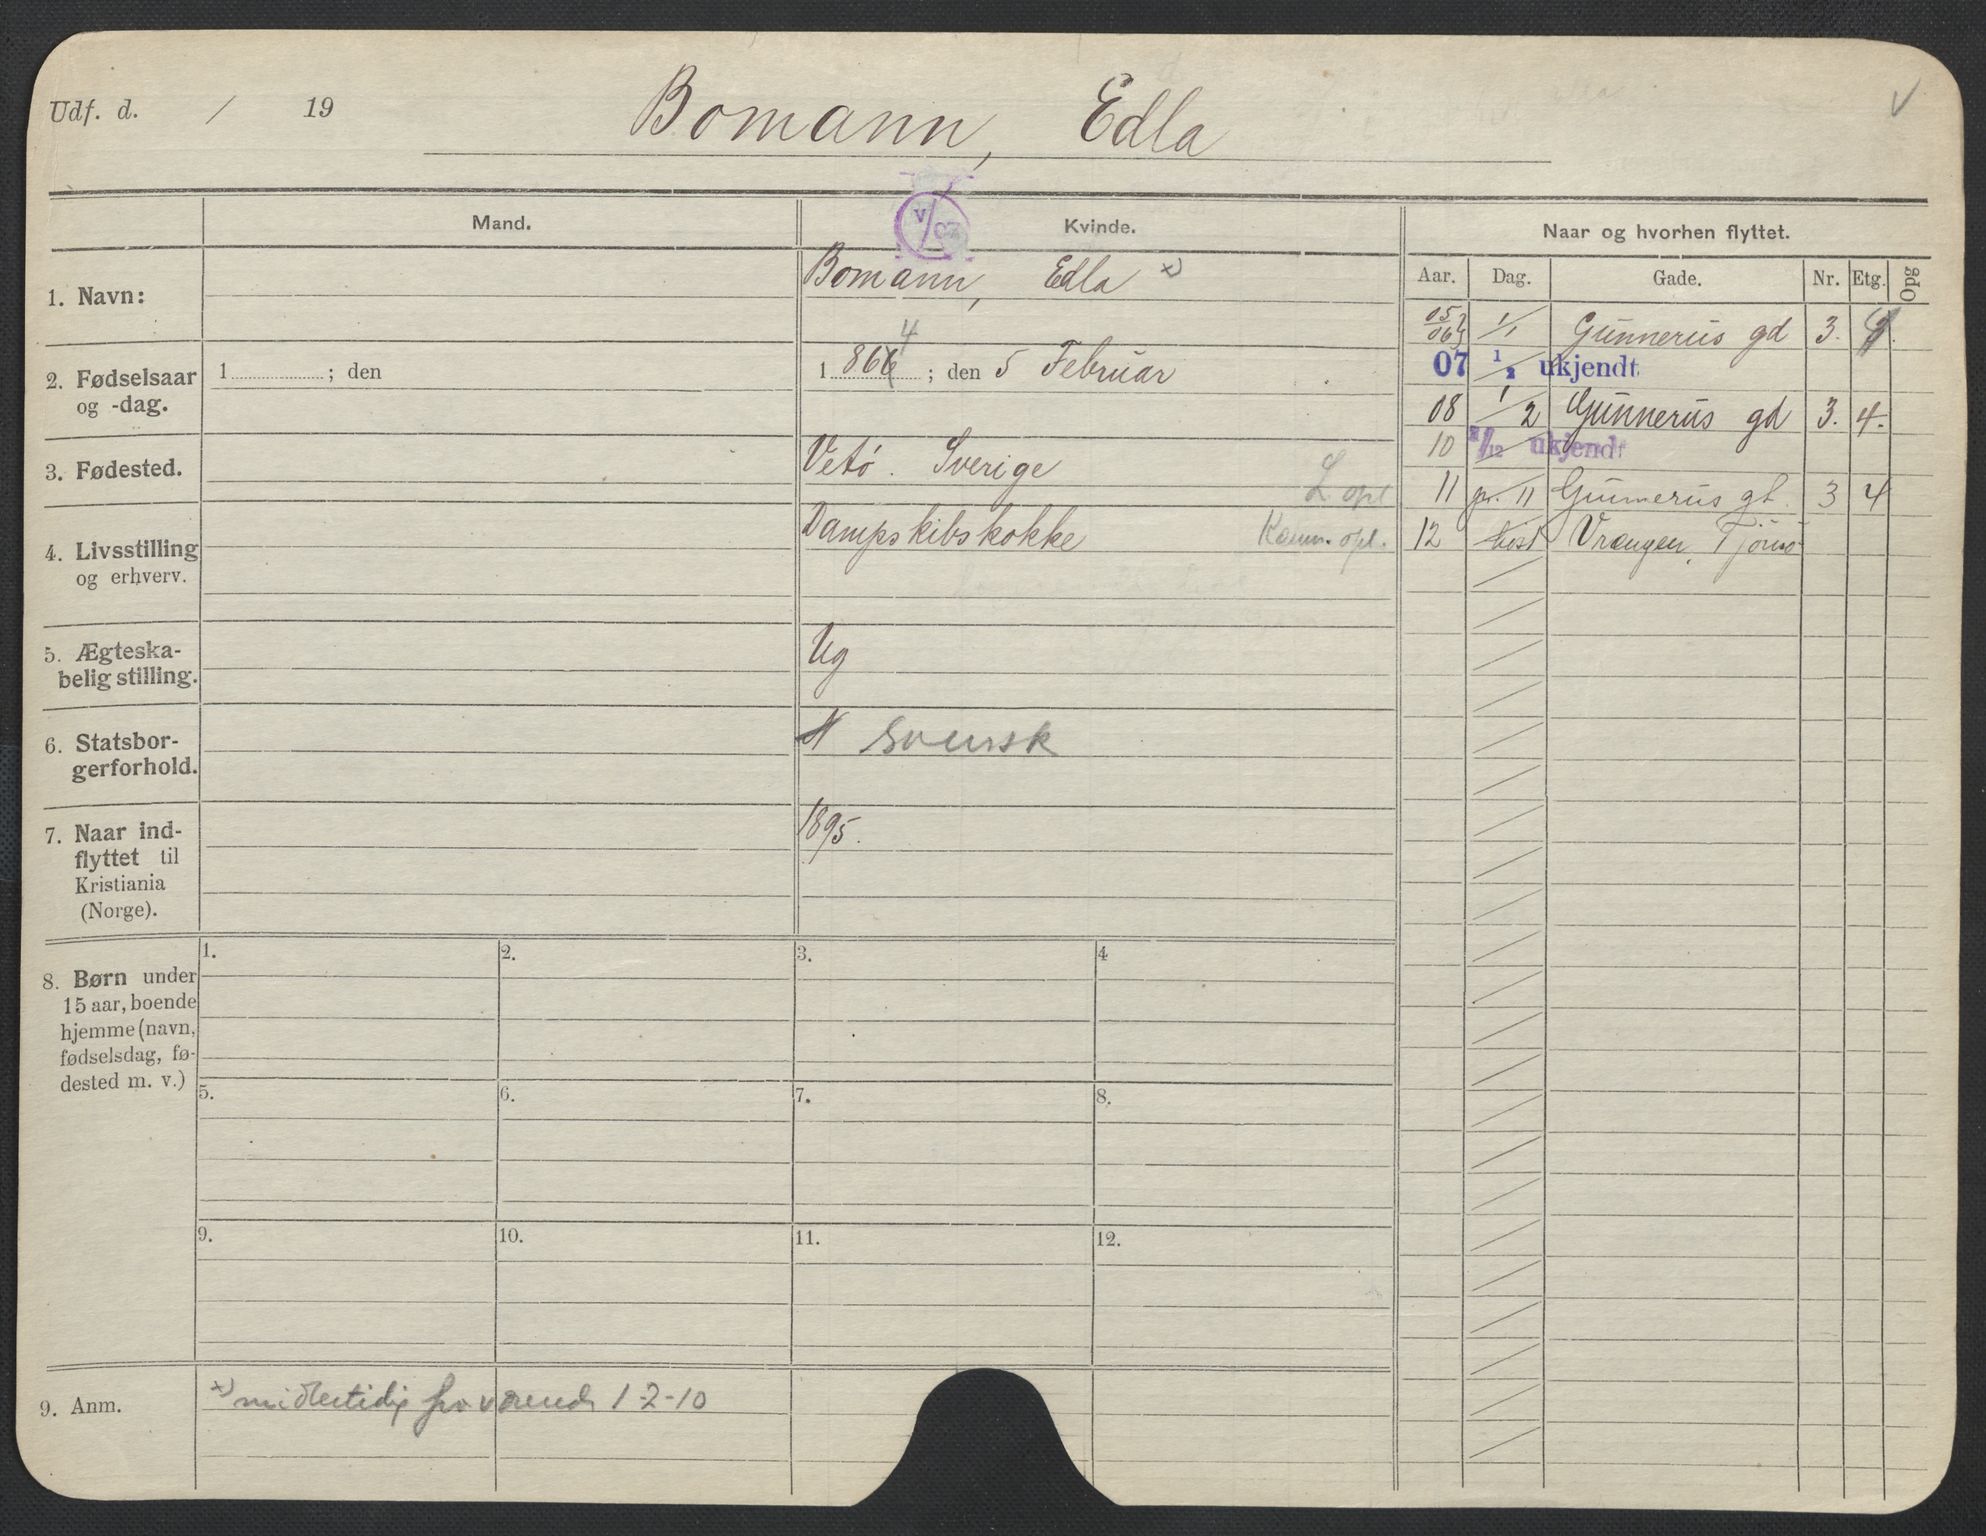 Udf. d. / 19
Bomann, Edla
v
Mand.
Kvinde.
Naar og hvorhen flyttet.
V/02
Aar. Dag. Gade. Nr. Etg. Opg
1. Navn:
Bomann, Edla x)
2. Fødselsaar
og -dag.
1 ; den
4
1 866 ; den 5 Februar
3. Fødested.
Vetö. Sverige
L opl
4. Livsstilling
og erhverv.
Dampskibskokke
Kom. opl.
5. Ægteska-
belig stilling.
Ug
6. Statsbor-
gerforhold.
N svensk
7. Naar ind-
flyttet til
Kristiania
(Norge).
1895.
05/06 1/1 Gunnerus gd 3.
07 1/2 ukjendt
08 1/2 Gunnerus gd 3. 4.
10 /12 ukjendt
11 pr. 11 Gunnerus gt. 3 4
12 høst Vrængen, Tjømø
8. Børn under
15 aar, boende
hjemme (navn,
fødselsdag, fø-
dested m. v.)
1. 2. 3. 4
5. 6. 7. 8.
9. 10. 11. 12.
9. Anm.
x) midlertidig fraværende 1-2-10